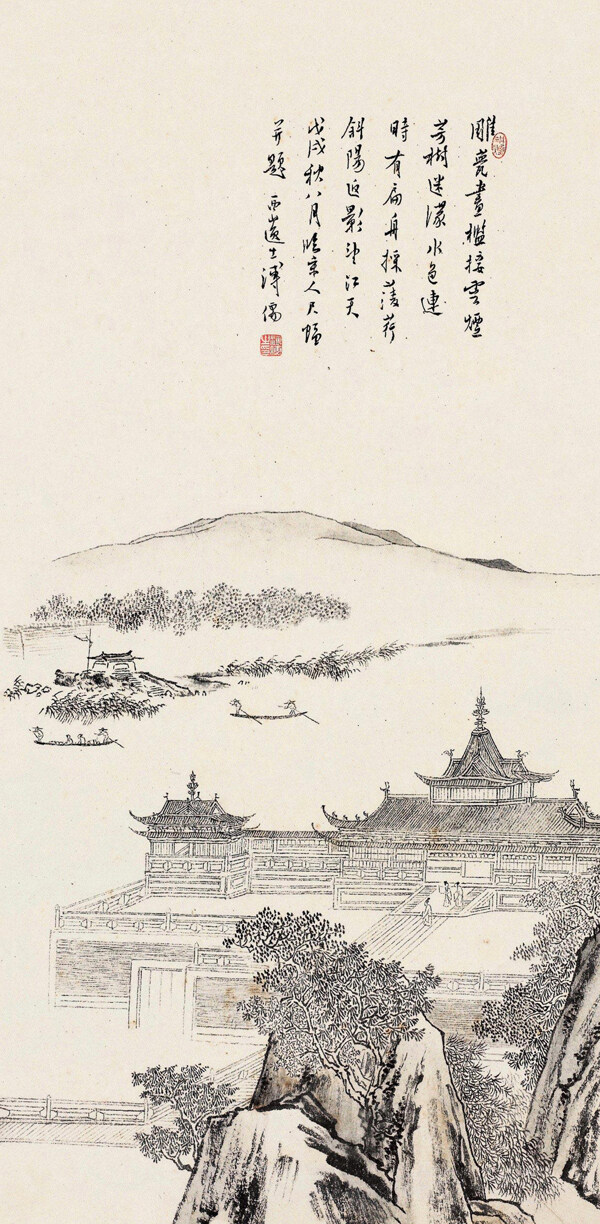 雕甍畫檻接雲煙
芳樹迷濛水色連
時有扁舟採菱荇
斜陽返影望江天
戊戌秋八月臨宋人尺幅
并題 西山逸士溥儒